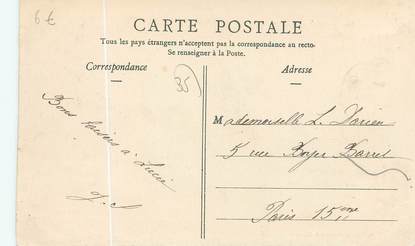 6 €
CARTE POSTALE
Tous les pays étrangers n'acceptent pas la correspondance au recto-
Se renseigner à la Poste.
Correspondance
Adresse
35
Bons baisers à Lucie
Mademoiselle L. Dorien
5 rue Royer
Paris 15ème